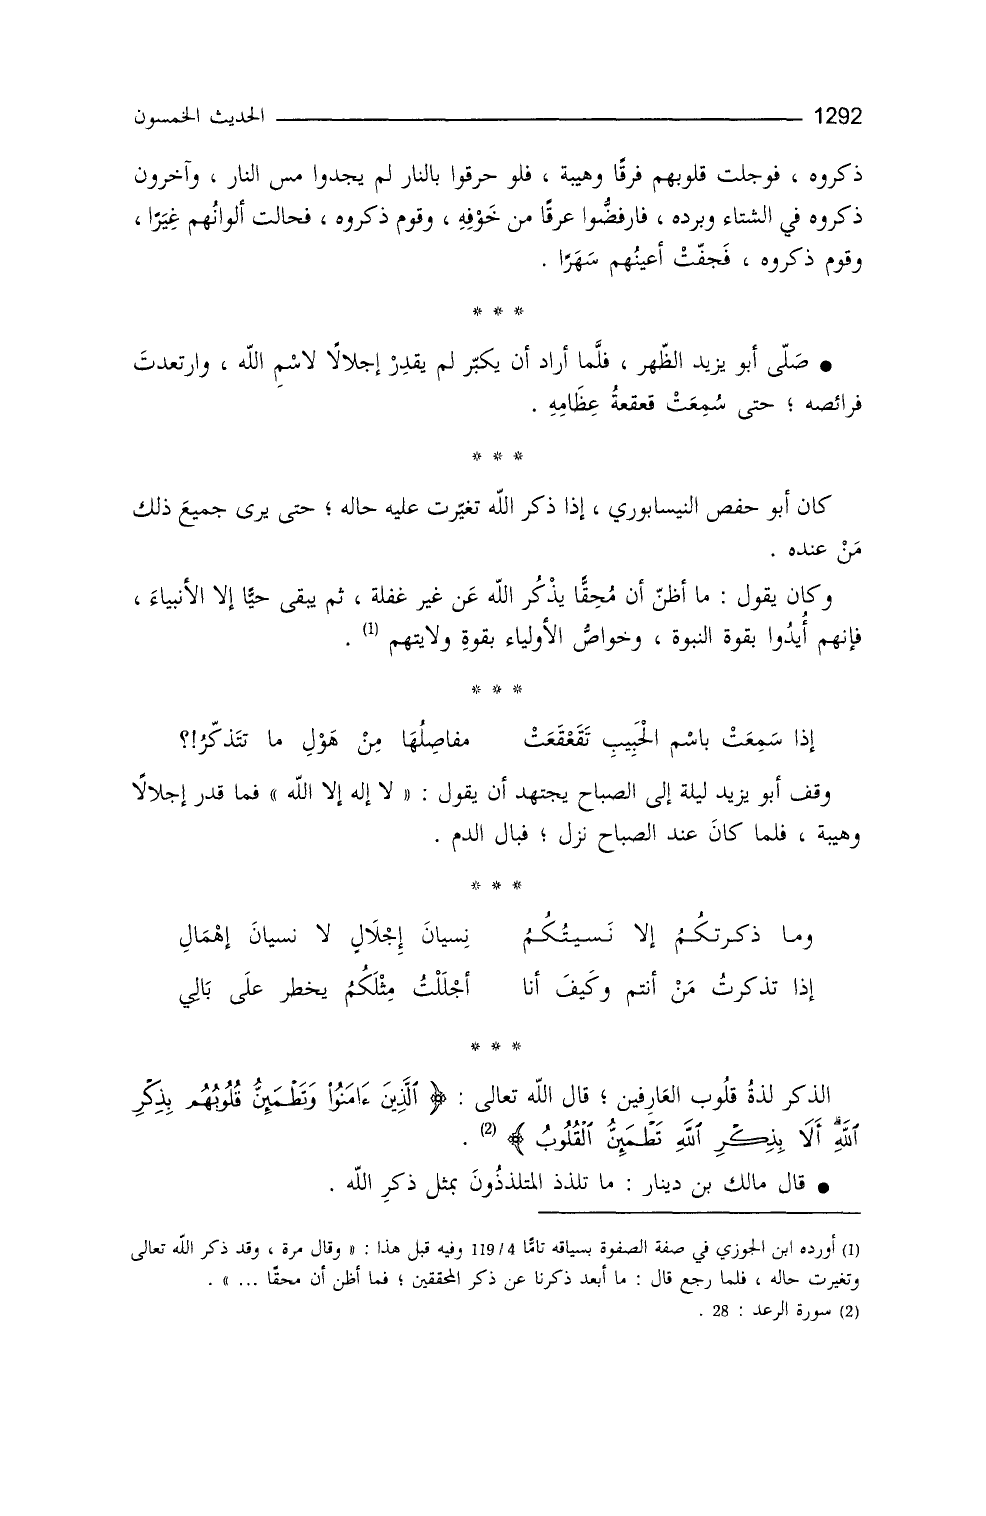 1292 الحديث الخمسون
ذكروه ، فوجلت قلوبهم فرقًا وهيبة ، فلو حرقوا بالنار لم يجدوا مس النار ، وآخرون
ذكروه في الشتاء وبرده ، فارفضُّوا عرقًا من خَوْفِهِ ، وقوم ذكروه ، فحالت ألوانُهم غِيَرًا ،
وقوم ذكروه ، فَجفّتْ أعينُهم سَهَرًا .
* * *
● صَلّى أبو يزيد الظّهر ، فلَّما أراد أن يكبّر لم يقدِرْ إجلالًا لاسْمِ اللّه ، وارتعدتَ
فرائصه ؛ حتى سُمِعَتْ قعقعةُ عِظَامِهِ .
* * *
كان أبو حفص النيسابوري ، إذا ذكر اللّه تغيّرت عليه حاله ؛ حتى يرى جميعَ ذلك
مَنْ عنده .
وكان يقول : ما أظنّ أن مُحِقًّا يذْكُر اللّه عَن غير غفلة ، ثم يبقى حيًّا إلا الأنبياءَ ،
فإنهم أُيدُوا بقوة النبوة ، وخواصُّ الأولياء بقوةِ ولايتهم (1) .
* * *
إذا سَمِعَتْ باسْم الْحَبِيبِ تَقَعْقَعَتْ مفاصِلُهَا مِنْ هَوْلِ ما تتَذكّرُ!؟
وقف أبو يزيد ليلة إلى الصباح يجتهد أن يقول : « لا إله إلا اللّه » فما قدر إجلالًا
وهيبة ، فلما كانَ عند الصباح نزل ؛ فبال الدم .
* * *
وما ذكرتكُمُ إلا نَسيتُكُمُ نِسيانَ إِجْلَالٍ لا نسيانَ إهْمَالِ
إذا تذكرتُ مَنْ أنتم وكَيفَ أنا أجْلَلْتُ مِثْلَكُمُ يخطر علَى بَالِي
* * *
الذكر لذةُ قلُوب العَارِفين ؛ قال اللّه تعالى : ﴿ ٱلَّذِينَ ءَامَنُواْ وَتَطْمَئِنُّ قُلُوبُهُم بِذِكْرِ
ٱللَّهِۗ أَلَا بِذِكْرِ ٱللَّهِ تَطْمَئِنُّ ٱلْقُلُوبُ ﴾ (2) .
● قال مالك بن دينار : ما تلذذ المتلذذُونَ بمثل ذكرِ اللّه .
(1) أورده ابن الجوزي في صفة الصفوة بسياقه تامًّا 4/ 119 وفيه قبل هذا : « وقال مرة ، وقد ذكر اللّه تعالى
وتغيرت حاله ، فلما رجع قال : ما أبعد ذكرنا عن ذكر المحققين ؛ فما أظن أن محقًا ... » .
(2) سورة الرعد : 28 .